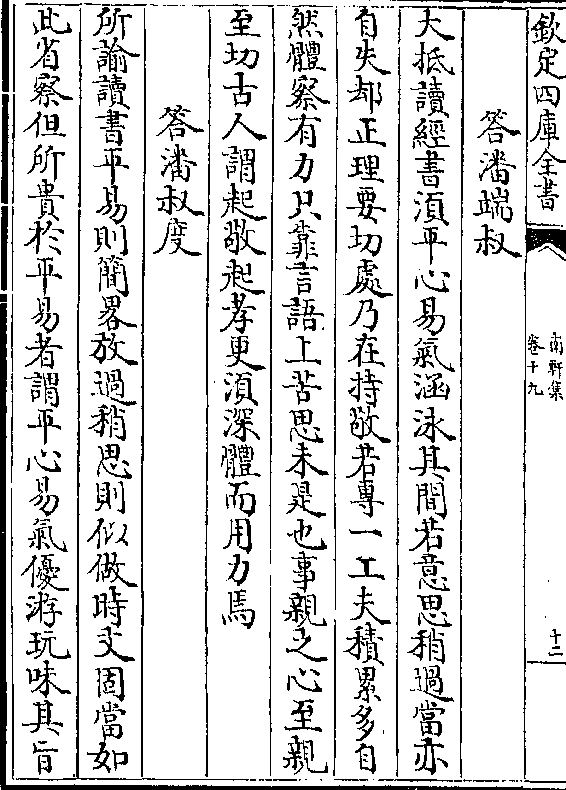 欽定四庫全書
南軒集
卷十九
十二
答潘端叔
大抵讀經書須平心易氣涵泳其間若意思稍過當亦
自失却正理要切處乃在持敬若專一工夫積累多自
然體察有力只靠言語上苦思未是也事親之心至親
至切古人謂起敬起孝更須深體而用力焉
答潘叔度
所諭讀書平易則簡畧放過稍思則似做時文固當如
此省察但所貴於平易者謂平心易氣優游玩味其旨